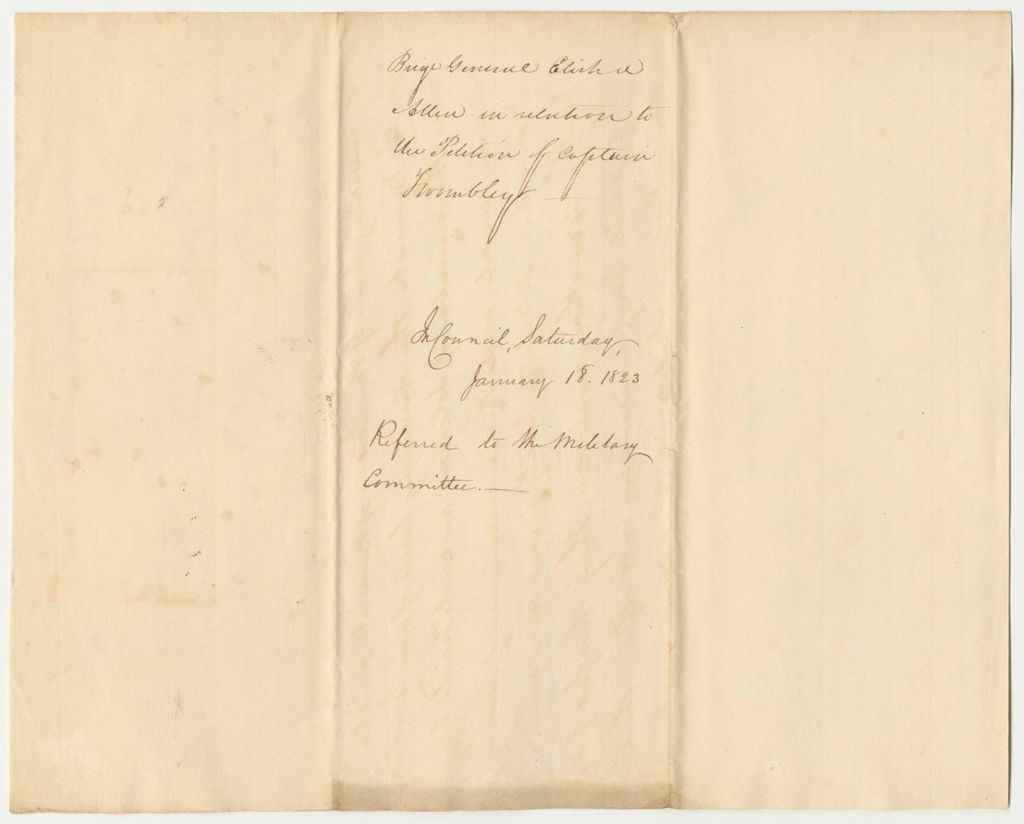 Brige General Elisha
Allen in relation to
the Petition of Captain
Twombley —
In Council, Saturday,
January 18. 1823
Referred to the Military
Committee. —